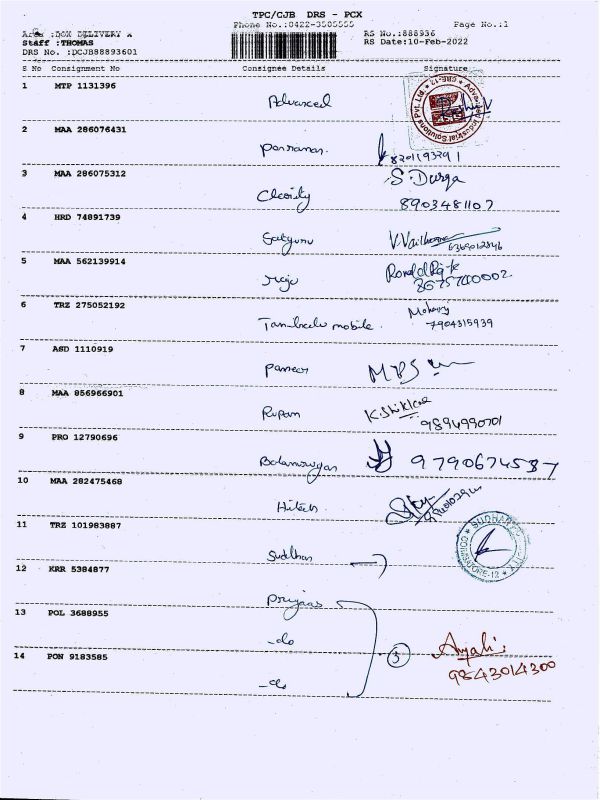 TPC/CJB DRS - PCX
Phone No.:0422-3505555 Page No.:1
Area :BOX DELIVERY A RS No.:888936
Staff :THOMAS RS Date:10-Feb-2022
DRS No. :DCJB88893601
S No Consignment No Consignee Details Signature
1 MTP 1131396
Advanced
Advanced Industrial Solutions Pvt. Ltd. * CBE-12 *
2 MAA 286076431
8201193291
3 MAA 286075312 S. Durga
8903481107
4 HRD 74891739
6369012846
5 MAA 562139914
8675740002.
6 TRZ 275052192
Tamilnadu mobile. 7904315939
7 ASD 1110919
8 MAA 856966901
Rupam
9894990701
9 PRO 12790696
Balamurugan 9790674537
10 MAA 282475468
Hitech
11 TRZ 101983887
COIMBATORE-12
Sudhan
12 KRR 5384877
13 POL 3688955
-do
3
14 PON 9183585
-do
9843014300